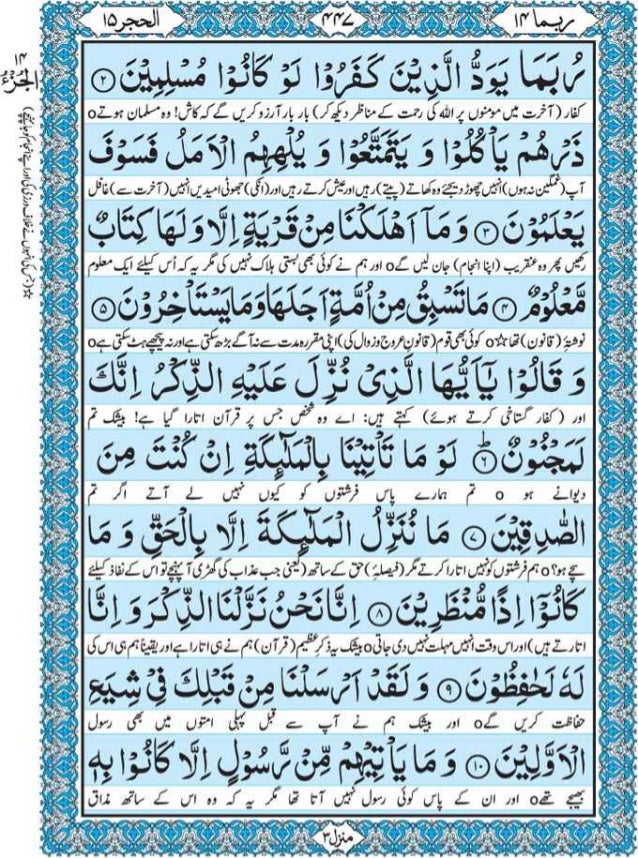 ربما ١٤
٤٤٧
الحجر ١٥
رُبَمَا يَوَدُّ الَّذِيْنَ كَفَرُوْا لَوْ كَانُوْا مُسْلِمِيْنَ ﴿۲﴾
کفار (آخرت میں مومنوں پر اللہ کی رحمت کے مناظر دیکھ کر) بار بار آرزو کریں گے کہ کاش! وہ مسلمان ہوتےo
ذَرْهُمْ يَاْكُلُوْا وَ يَتَمَتَّعُوْا وَ يُلْهِهِمُ الْاَمَلُ فَسَوْفَ
آپ (غمگین نہ ہوں) انہیں چھوڑ دیجئے وہ کھاتے (پیتے) رہیں اور عیش کرتے رہیں اور (انکی) جھوٹی امیدیں انہیں (آخرت سے) غافل
يَعْلَمُوْنَ ﴿۳﴾ وَ مَاۤ اَهْلَكْنَا مِنْ قَرْيَةٍ اِلَّا وَ لَهَا كِتَابٌ
رکھیں پھر وہ عنقریب (اپنا انجام) جان لیں گےo اور ہم نے کوئی بھی بستی ہلاک نہیں کی مگر یہ کہ اُس کیلئے ایک معلوم
مَّعْلُوْمٌ ﴿۴﴾ مَا تَسْبِقُ مِنْ اُمَّةٍ اَجَلَهَا وَ مَا يَسْتَاْخِرُوْنَ ﴿۵﴾
نوشتۂ (قانون) تھا☆o کوئی بھی قوم (قانونِ عروج و زوال کی) اپنی مقررہ مدت سے نہ آگے بڑھ سکتی ہے اور نہ پیچھے ہٹ سکتی ہےo
وَ قَالُوْا يٰۤاَيُّهَا الَّذِيْ نُزِّلَ عَلَيْهِ الذِّكْرُ اِنَّكَ
اور (کفار گستاخی کرتے ہوئے) کہتے ہیں: اے وہ شخص جس پر قرآن اتارا گیا ہے! بیشک تم
لَمَجْنُوْنٌ ﴿۶﴾ؕ لَوْ مَا تَاْتِيْنَا بِالْمَلٰٓىِٕكَةِ اِنْ كُنْتَ مِنَ
دیوانے ہو o تم ہمارے پاس فرشتوں کو کیوں نہیں لے آتے اگر تم
الصّٰدِقِيْنَ ﴿۷﴾ مَا نُنَزِّلُ الْمَلٰٓىِٕكَةَ اِلَّا بِالْحَقِّ وَ مَا
سچے ہو؟o ہم فرشتوں کو نہیں اتارا کرتے مگر (فیصلۂ) حق کے ساتھ (یعنی جب عذاب کی گھڑی آ پہنچے تو اس کے نفاذ کیلئے
كَانُوْۤا اِذًا مُّنْظَرِيْنَ ﴿۸﴾ اِنَّا نَحْنُ نَزَّلْنَا الذِّكْرَ وَ اِنَّا
اتارتے ہیں) اور اس وقت انہیں مہلت نہیں دی جاتیo بیشک یہ ذکرِ عظیم (قرآن) ہم نے ہی اتارا ہے اور یقیناً ہم ہی اس کی
لَهٗ لَحٰفِظُوْنَ ﴿۹﴾ وَ لَقَدْ اَرْسَلْنَا مِنْ قَبْلِكَ فِيْ شِيَعِ
حفاظت کریں گےo اور بیشک ہم نے آپ سے قبل پہلی امتوں میں بھی رسول
الْاَوَّلِيْنَ ﴿۱۰﴾ وَ مَا يَاْتِيْهِمْ مِّنْ رَّسُوْلٍ اِلَّا كَانُوْا بِهٖ
بھیجے تھےo اور ان کے پاس کوئی رسول نہیں آتا تھا مگر یہ کہ وہ اس کے ساتھ مذاق
منزل ۳
۱۴
الجزء